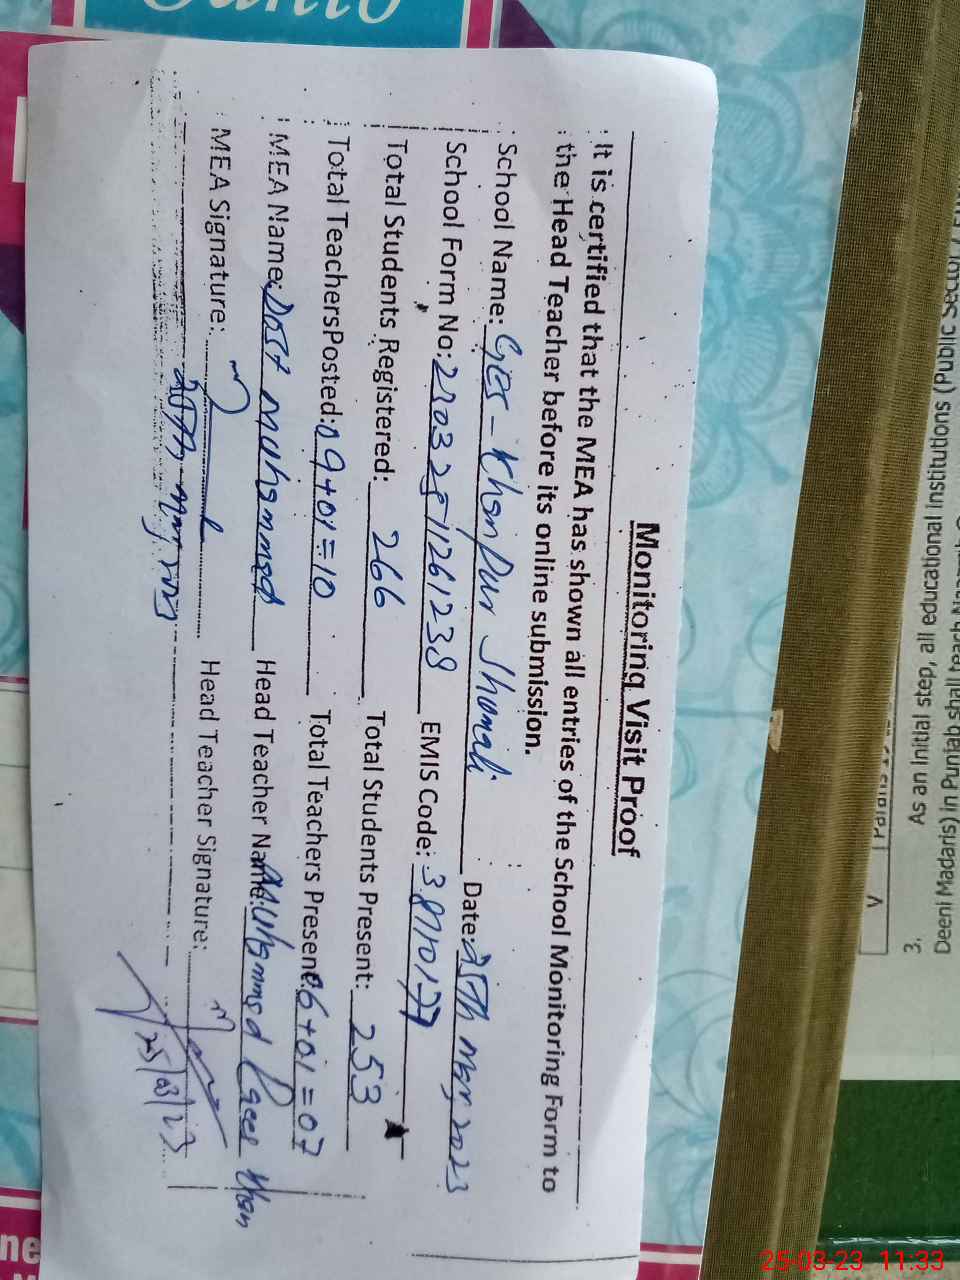 Monitoring Visit Proof
It is certified that the MEA has shown all entries of the School Monitoring Form to
the Head Teacher before its online submission.
School Name: Ges - Khanpur Shomali Date: 25th Mar 2023
School Form No: 23032511261238 EMIS Code:
Total Students Registered: 266 Total Students Present: 253
Total Teachers Posted: 09+01=10 Total Teachers Present: 06+01=07
MEA Name: Dost Muhammad Head Teacher Name: Muhammad Khan
MEA Signature: Head Teacher Signature:
25/03/23
3. As an initial step, all educational institutions (Public Sector
Deeni Madaris) in Punjab shall teach
25-03-23 11:33